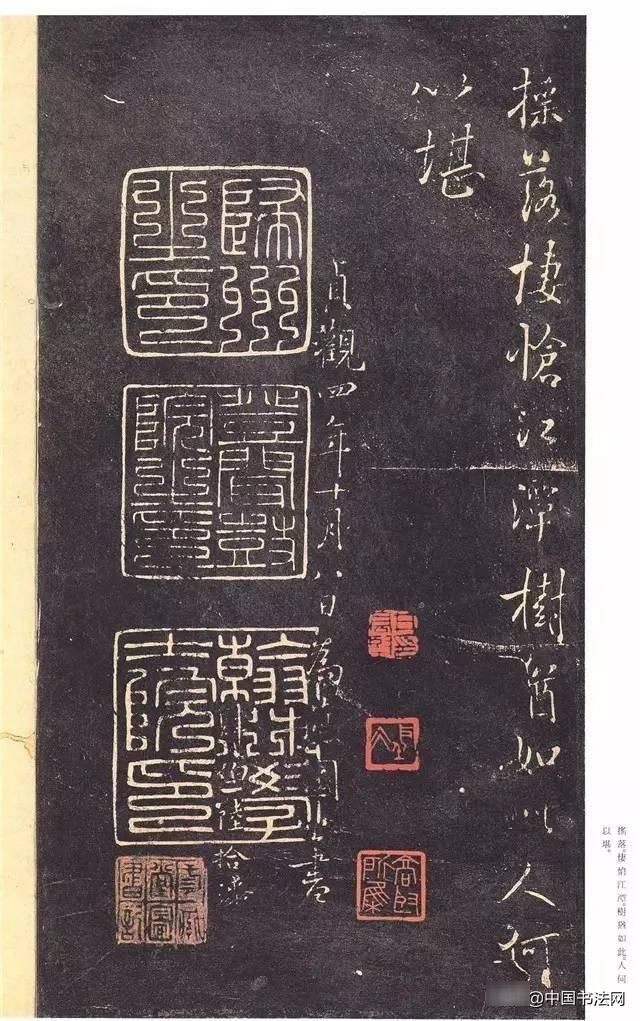 搖落悽愴江潭樹猶如此人何
以堪
貞觀四年十月八日為燕國公書
翰林學士院印
搖落。悽愴江潭。樹猶如此。人何
以堪。
@中国书法网